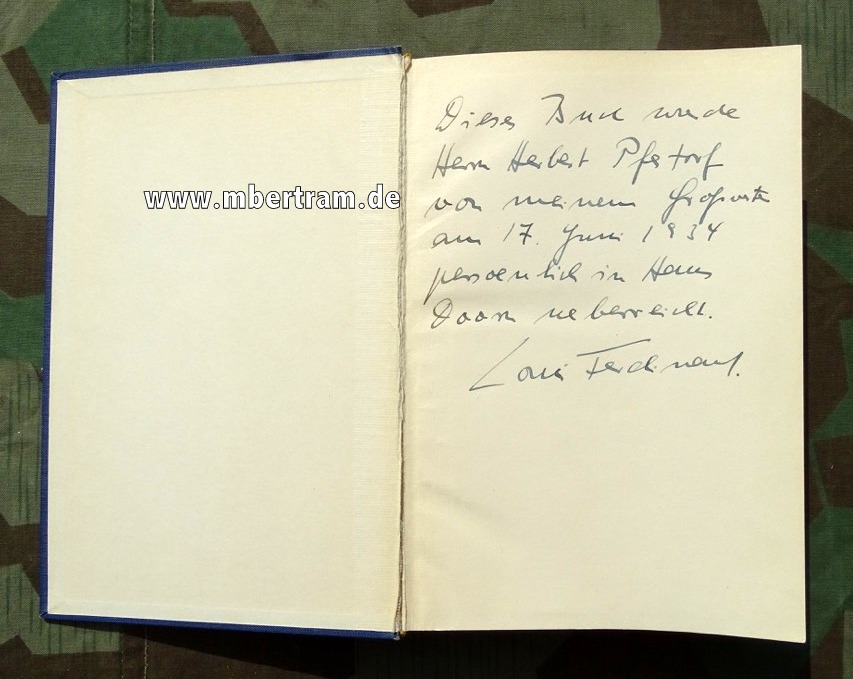 www.mbertram.de
Dieses Buch wurde
Herrn Herbert Pfertorf
von meinem Großvater
am 17. Juni 1934
persoenlich in Haus
Doorn ueberreicht.
Louis Ferdinand.